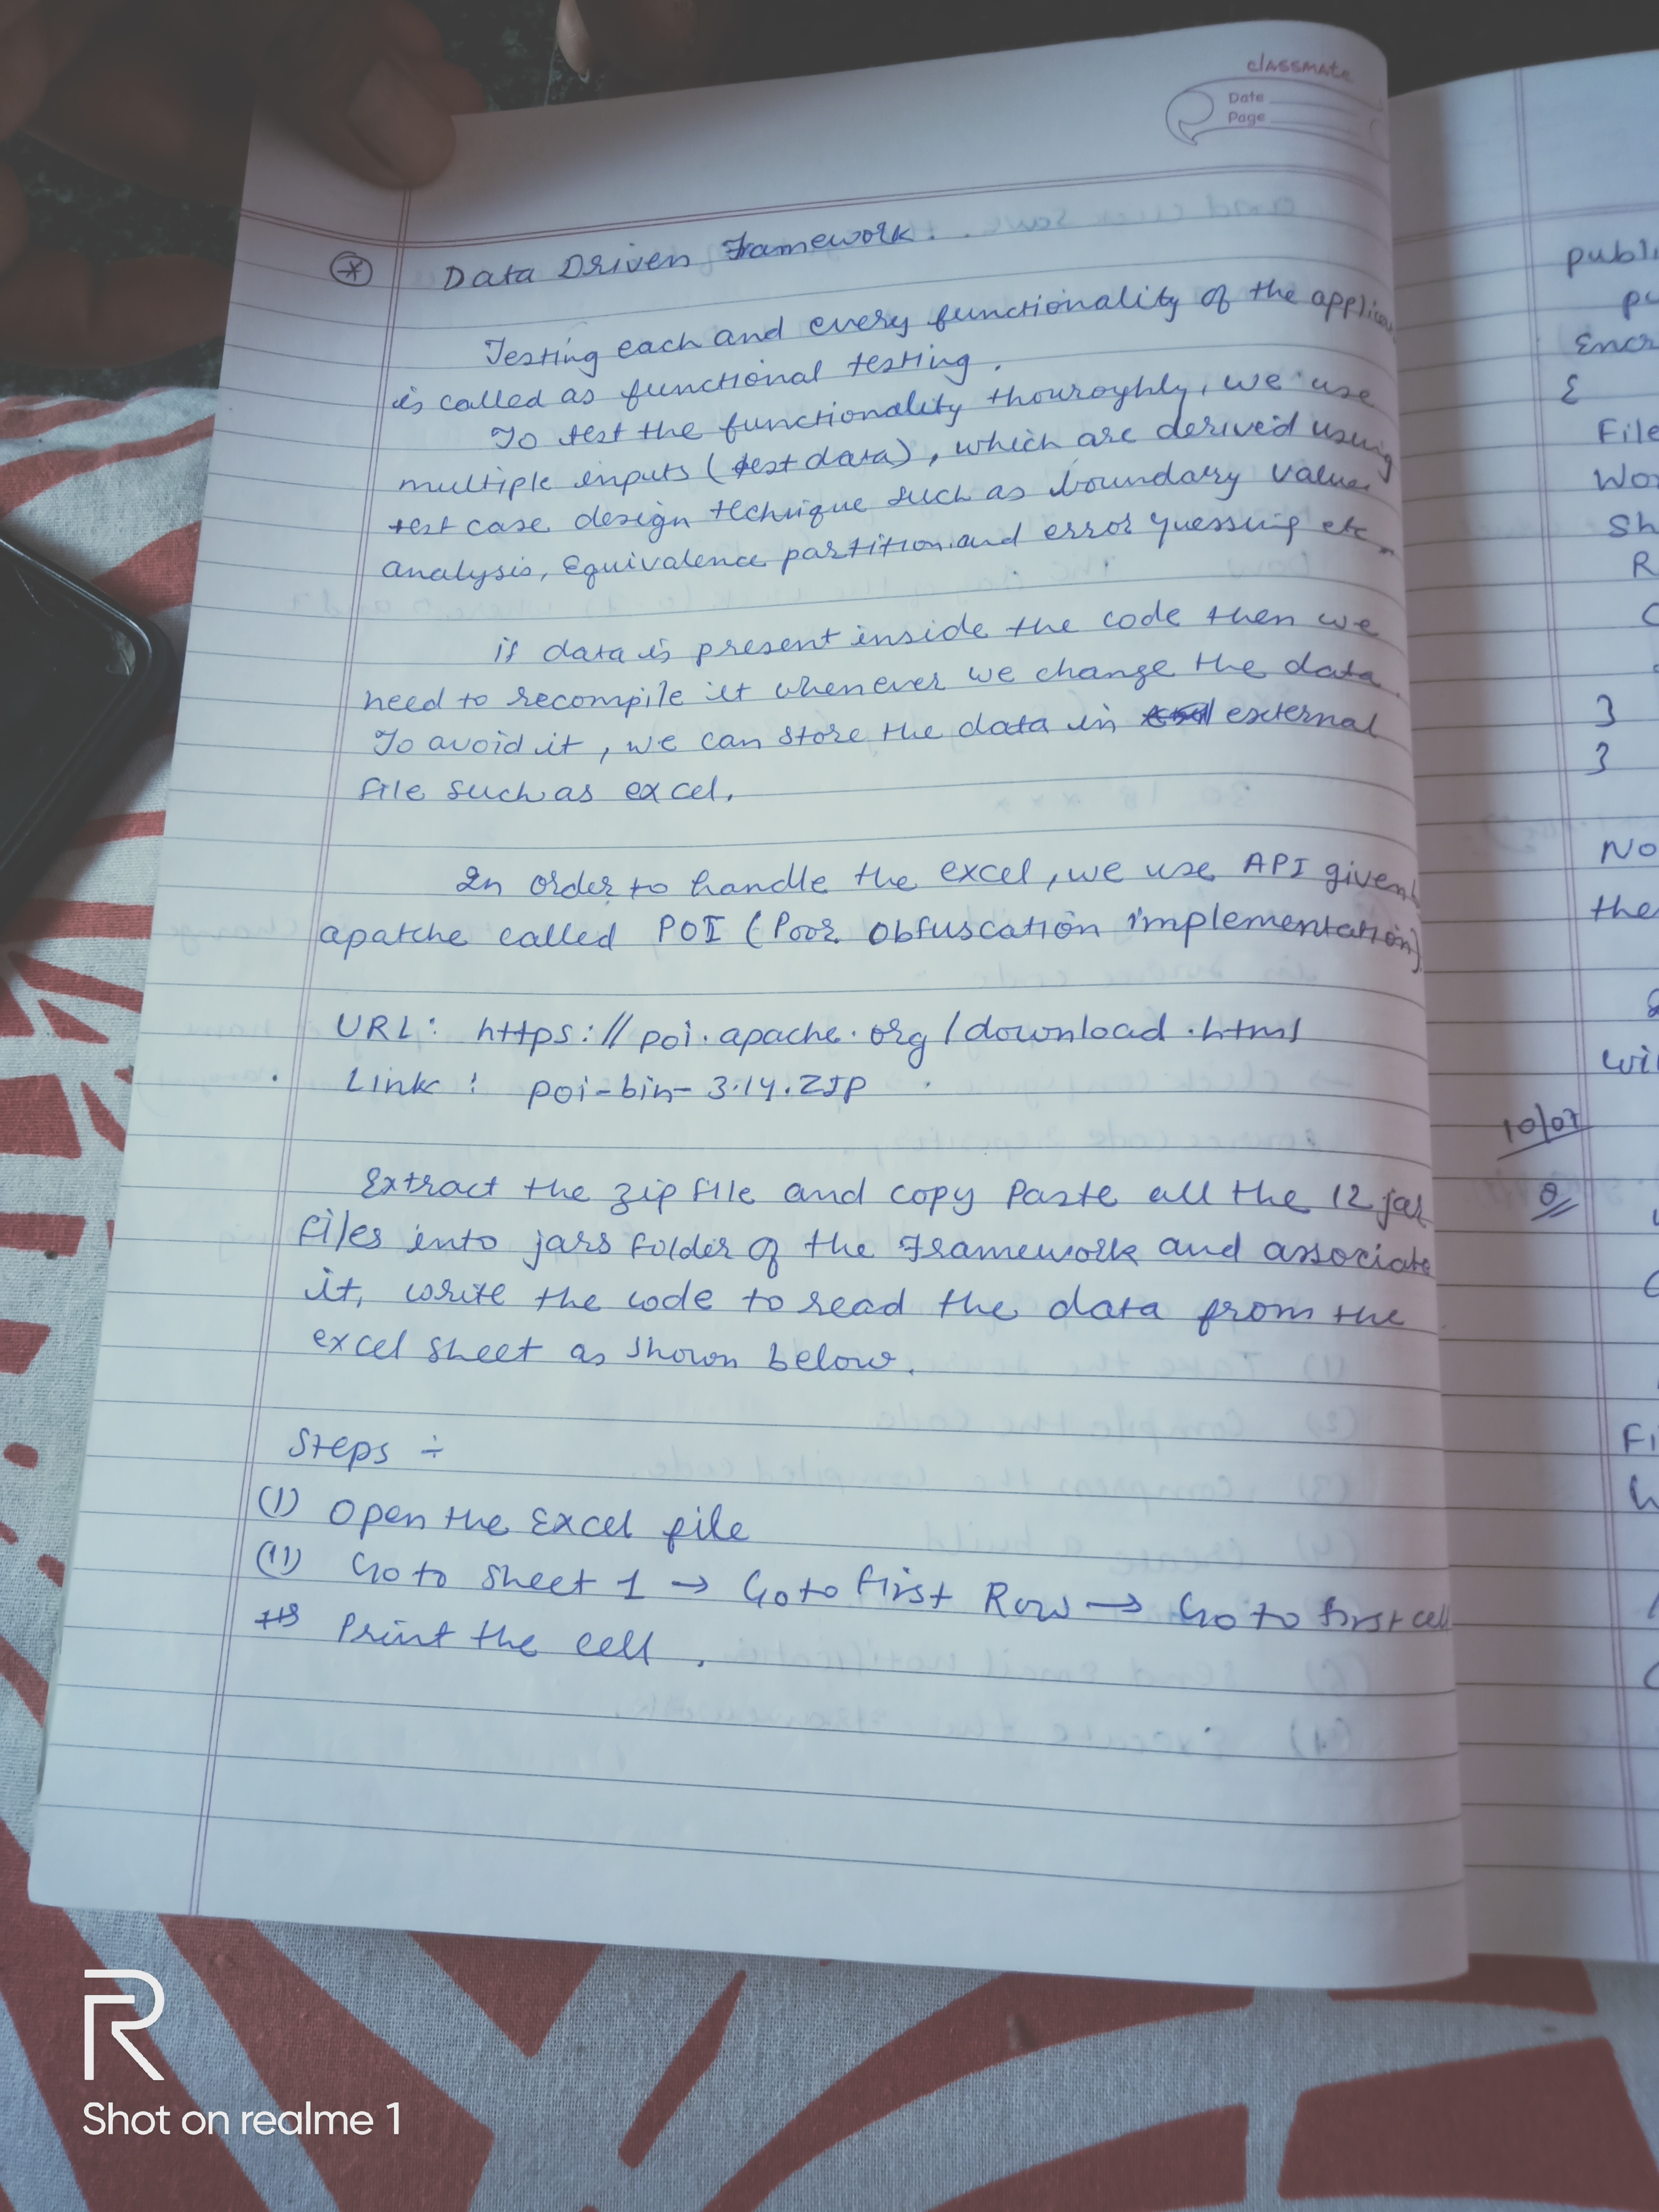 classmate
Date
Page
* Data Driven Framework.
Testing each and every functionality of the applica
is called as functional testing.
To test the functionality thouroghly, we use
multiple inputs (test data), which are derived using
test case design technique such as boundary value
analysis, Equivalence partition and error guessing etc.
if data is present inside the code then we
need to recompile it whenever we change the data.
To avoid it, we can store the data in external
file such as excel.
In order to handle the excel, we use API given
apatche called POI (Poor Obfuscation implementation)
URL: https://poi.apache.org/download.html
Link: poi-bin-3.14.ZIP
Extract the zip file and copy paste all the 12 jar
files into jars folder of the framework and associate
it, write the code to read the data from the
excel sheet as shown below.
Steps ÷
(I) Open the Excel file
(II) Go to sheet 1 → Go to first Row → Go to first cell
Print the cell.
publi
pu
Encr
{
File
Wor
Sh
R
}
}
No
the
wil
10/07
Q
Fi
R
Shot on realme 1